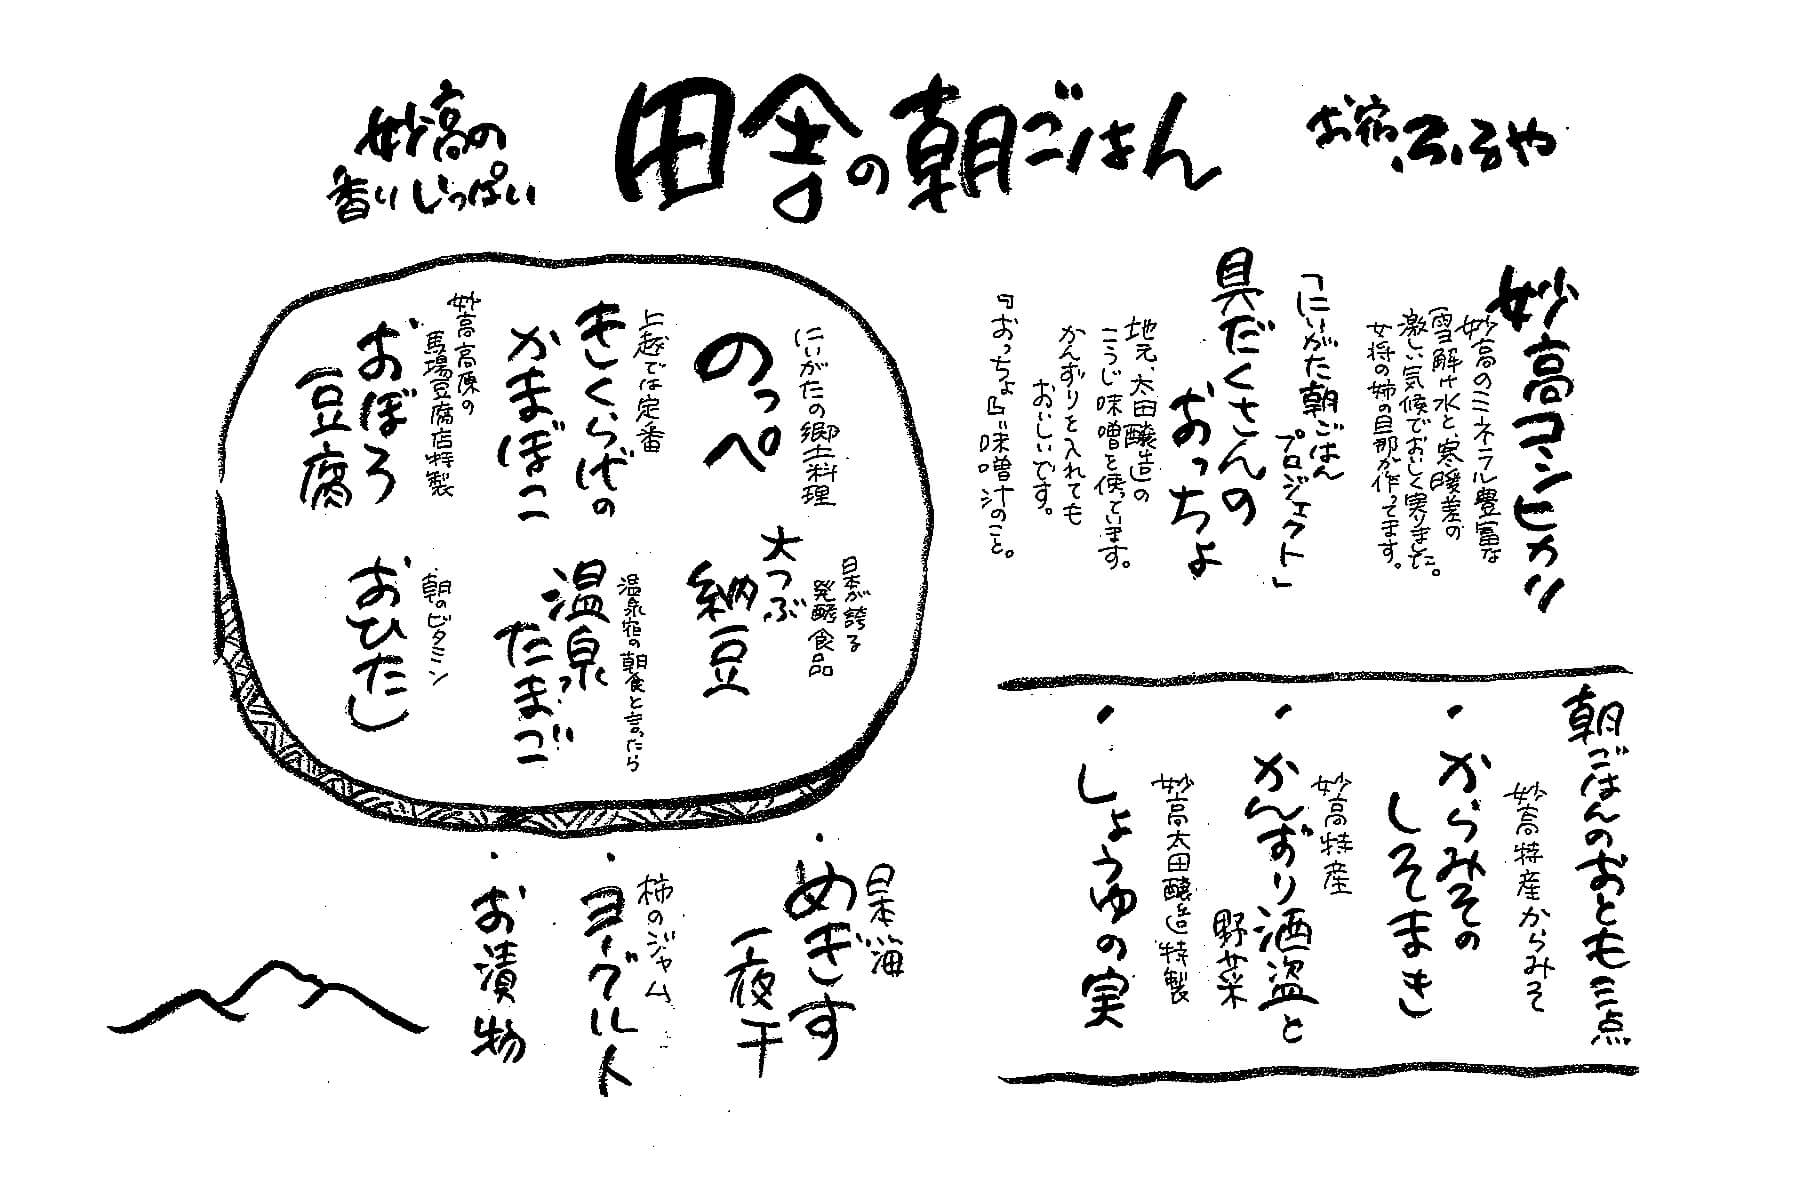 お宿ふるや
田舎の朝ごはん
妙高の
香りいっぱい
妙高コシヒカリ
妙高のミネラル豊富な
雪解け水と、寒暖差の
激しい気候でおいしく実りました。
女将の姉の旦那が作ってます。
「にいがた朝ごはん
プロジェクト」
具だくさんの
おっちょ
地元、太田醸造の
こうじ味噌を使っています。
かんずりを入れても
おいしいです。
『おっちょ』味噌汁のこと。
朝ごはんのおとも三点
妙高特産からみそ
・からみその
しそまき
妙高特産
・かんずり酒盗と
野菜
妙高太田醸造特製
・しょうゆの実
にいがたの郷土料理
のっぺ
上越では定番
きくらげの
かまぼこ
妙高高原の
馬場豆腐店特製
おぼろ
豆腐
日本が誇る
発酵食品
大つぶ
納豆
温泉宿の朝食と言ったら
温泉
たまご
朝のビタミン
おひたし
日本海
・めぎす
一夜干
柿のジャム
・ヨーグルト
・お漬物